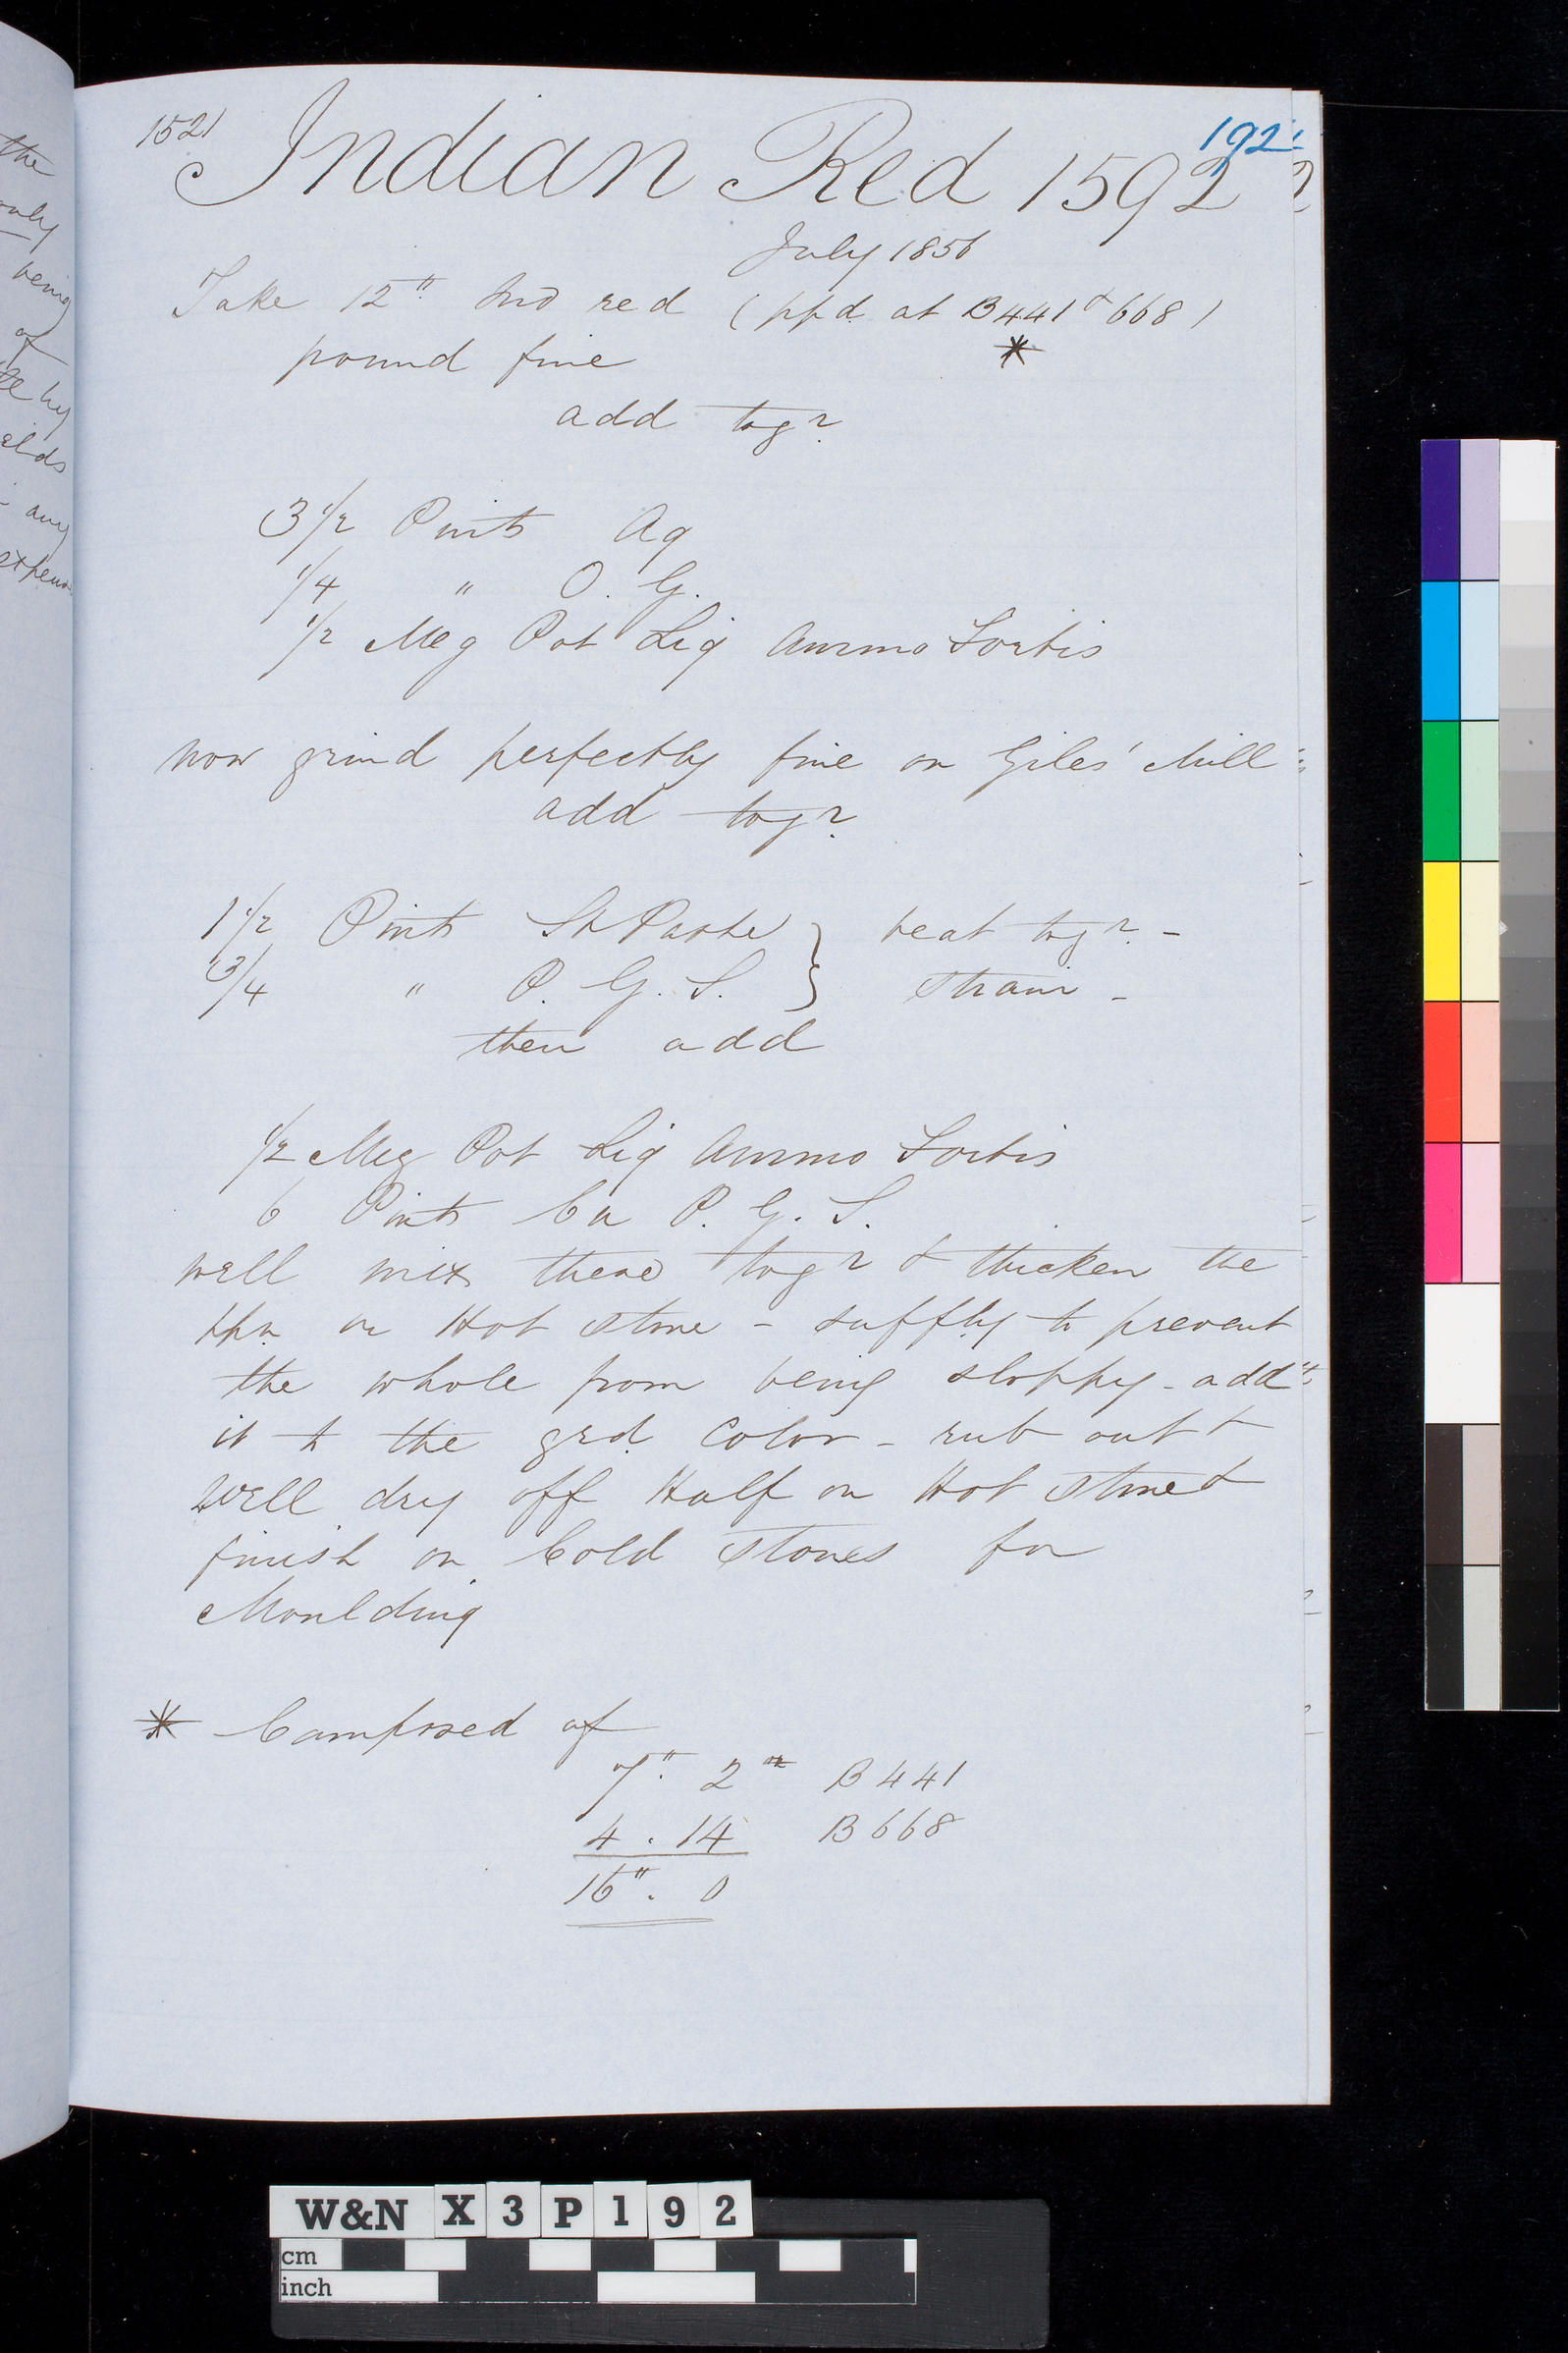 1521
192
Indian Red 1592
July 1856
Take 12" Ind red (ppd at B441 & 668)
pound fine *
add togr
3 1/2 Pints Aq
1/4 " O. G.
1/2 Meg Pot Liq Ammo Fortis
now grind perfectly fine on Giles' Mill
add togr
1 1/2 Pints St Paste } beat togr -
3/4 " P. G. S. } strain -
then add
1/2 Meg Pot Liq Ammo Fortis
6 Pints Cn P. G. S.
well mix these togr & thicken the
on Hot stone - suffly to prevent
the whole from being sloppy - add
it to the grd Color - rub out &
well dry off Half on Hot stone &
finish on Cold stones for
Moulding
* Composed of
7" 2 oz B441
4 . 14 B668
16" . 0
the
only
being
of
by
any
W&N X3P192
cm
inch